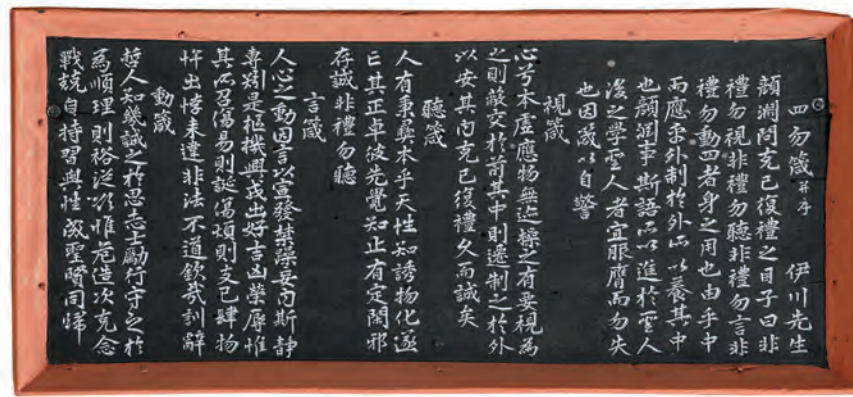 四勿箴 幷序 伊川先生
顔淵問克己復禮之目子曰非
禮勿視非禮勿聽非禮勿言非
禮勿動四者身之用也由乎中
而應乎外制於外所以養其中
也顔淵事斯語所以進於聖人
後之學聖人者宜服膺而勿失
也因箴以自警
視箴
心兮本虛應物無迹操之有要視爲
之則蔽交於前其中則遷制之於外
以安其內克己復禮久而誠矣
聽箴
人有秉彝本乎天性知誘物化遂
亡其正卓彼先覺知止有定閑邪
存誠非禮勿聽
言箴
人心之動因言以宣發禁躁妄內斯靜
專矧是樞機興戎出好吉凶榮辱惟
其所召傷易則誕傷煩則支己肆物
忤出悖来違非法不道欽哉訓辭
動箴
哲人知幾誠之於思志士勵行守之於
爲順理則裕從欲惟危造次克念
戰兢自持習與性成聖賢同歸